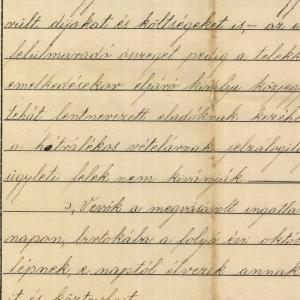 rült díjakat és költségeket is, - az e
felülmaradó összeget pedig a telekk
emelkedésekor eljáró királyi közjegy
tehát fentnevezett eladóknak kezéhe
a hátrálékos vételárnak jelzálogila
ügyleti felek nem kívánják
Vevők a megvásárolt ingatla
napon, birtokába a folyó évi októ
lépnek, e naptól élvezik annak
it és közterheit